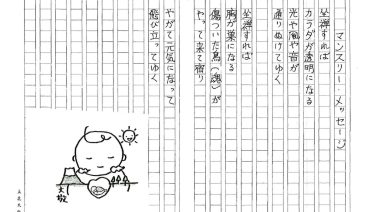 マンスリー・メッセージ
坐禅すれば
カラダが透明になる
光や風や音が
通りぬけてゆく
坐禅すれば
胸が巣になる
傷ついた鳥(魂)が
やって来て宿り
やがて元気になって
飛び立ってゆく